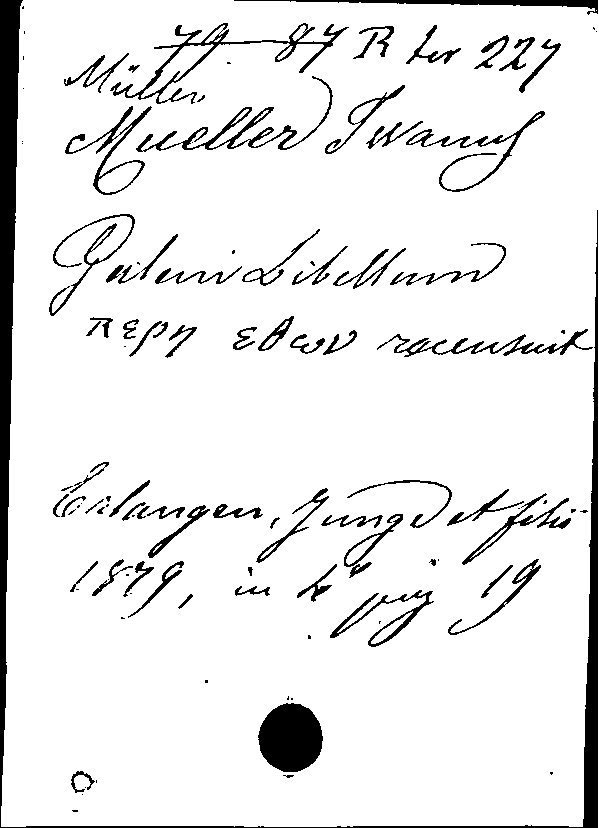 79 - 87 R ter 227
Müller
Mueller Iwanus
Galeni Libellum
περη εθων recensuit
Erlangen, Junge et filii
1879, in 4° pag 19